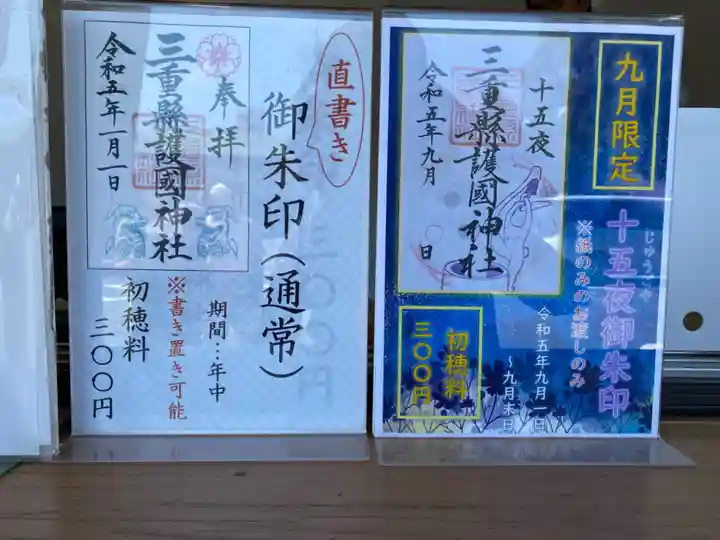 直書き
御朱印(通常)
奉拝
三重縣護國神社
令和五年一月一日
期間…年中
※書き置き可能
初穂料
三〇〇円
九月限定
じゅうごや
十五夜御朱印
※紙のみのお渡しのみ
十五夜
三重縣護國神社
令和五年九月 日
令和五年九月一日
～九月末日
初穂料
三〇〇円